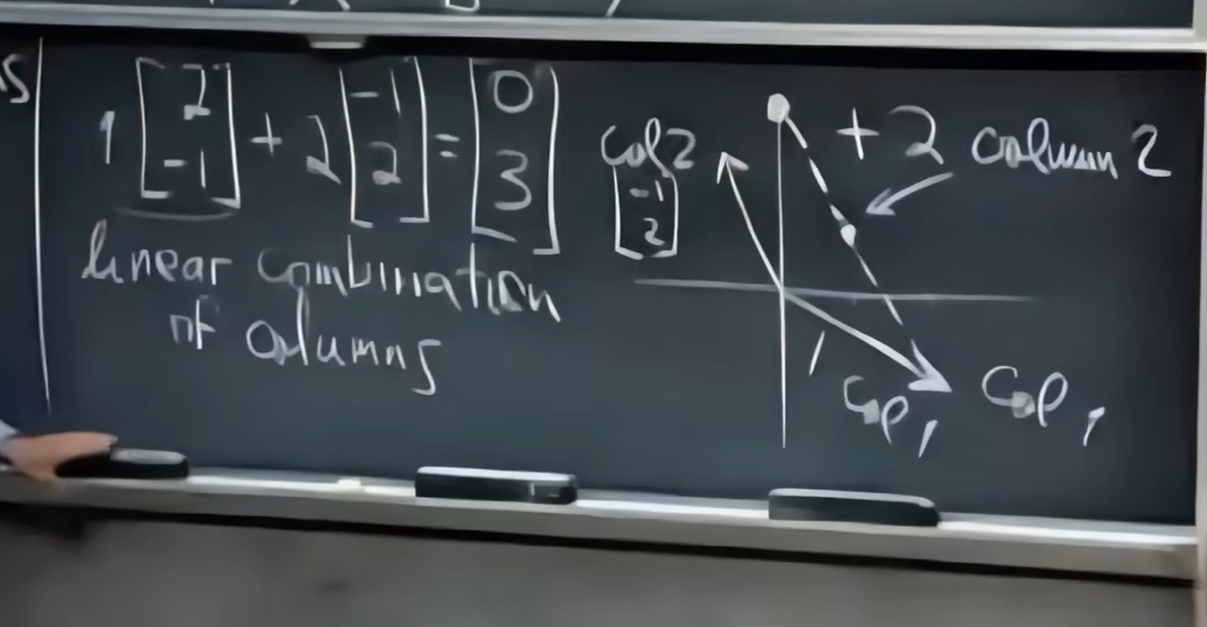 s
1 [2 -1] + 2 [-1 2] = [0 3]
linear combination
of columns
col 2
[-1 2]
+ 2 column 2
1 col 1
col 1